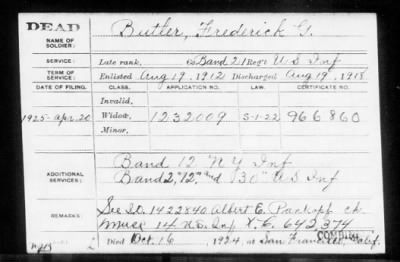 DEAD
NAME OF SOLDIER:
Butler, Frederick G.
SERVICE: Late rank, Band 21 Reg't U S Inf
TERM OF SERVICE: Enlisted Aug 19, 1912 Discharged Aug 19, 1915
DATE OF FILING. CLASS. APPLICATION NO. CERTIFICATE NO.
Invalid,
1925-Apr. 20 Widow, 1232009 S-1-22 966860
Minor,
ADDITIONAL SERVICES:
Band 12 N Y Inf
Band 2," 12," and 30" U S Inf
REMARKS:
See IO. 1422840 Albert E. ch.
14 Inf X.C. 642374
Died Oct. 16, 1924, at San Francisco, Calif.